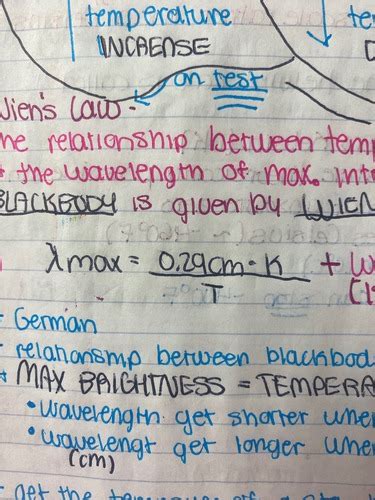 temperature
INCREASE
on test
Wien's Law -
the relationship between temp
the wavelength of max. int
BLACKBODY is given by WIEN
λmax = 0.29cm · K
T
+ W
German
relationship between blackbod
* MAX BRIGHTNESS = TEMPERA
• wavelength get shorter when
• wavelengt get longer when
(cm)
get the